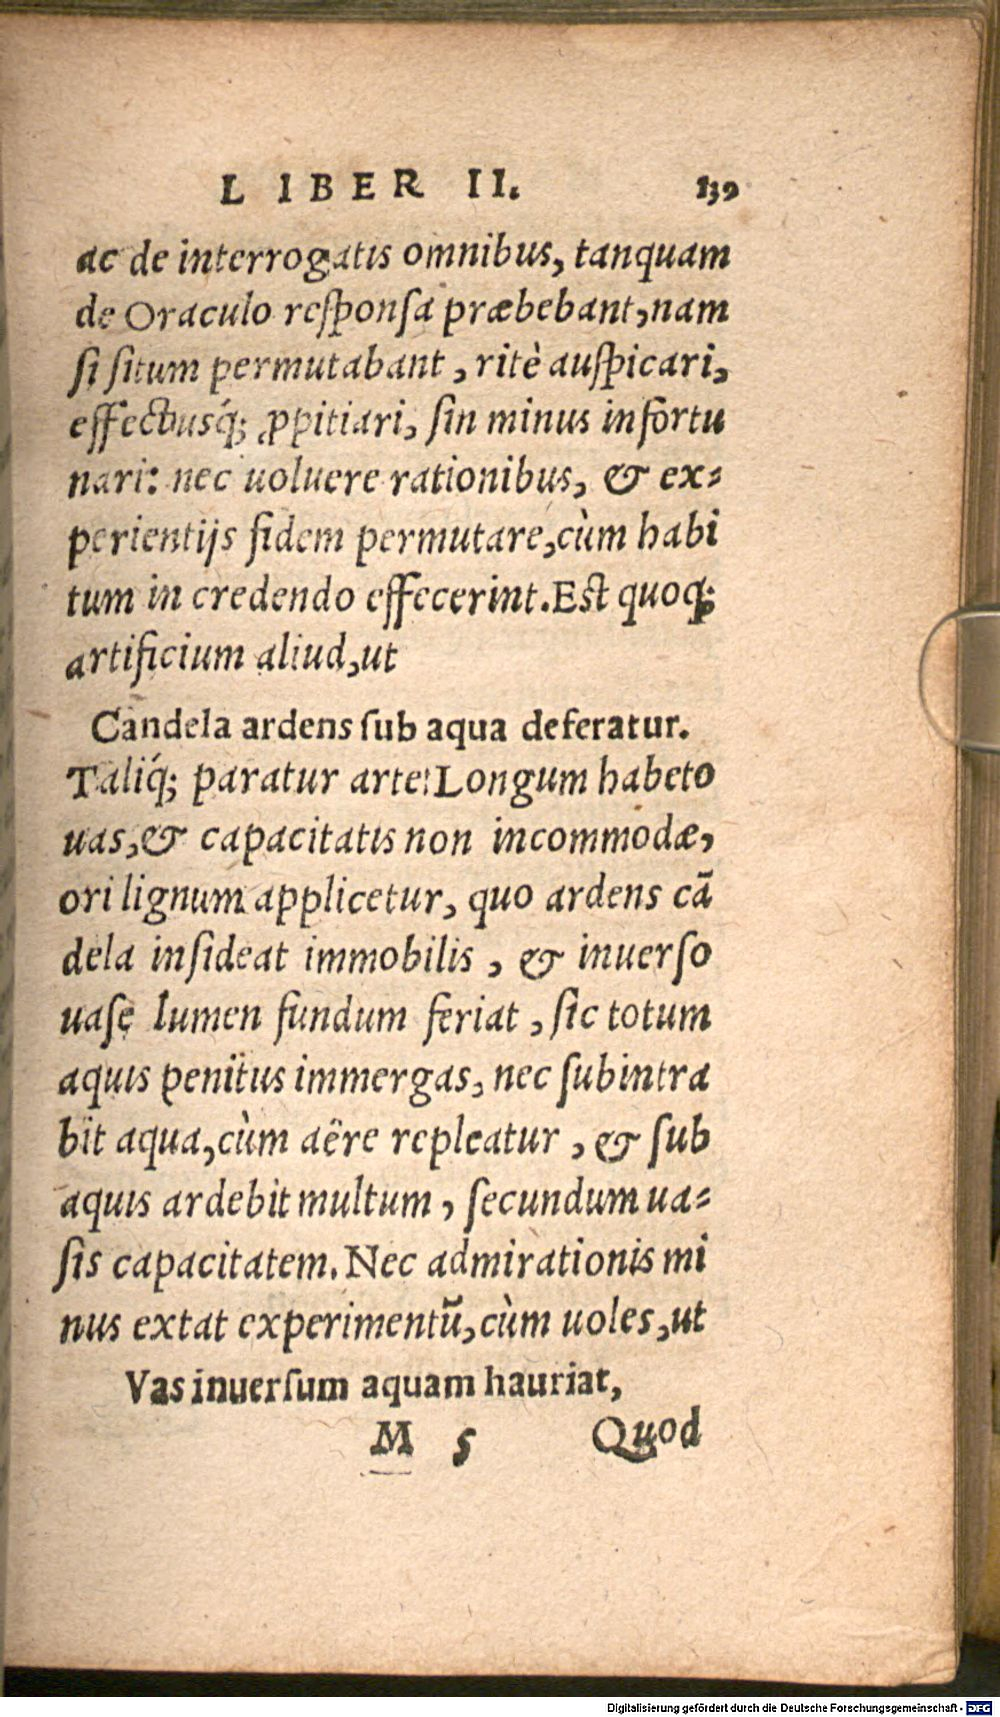 LIBER II. 139
ac de interrogatis omnibus, tanquam
de Oraculo reſponſa præbebant, nam
ſi ſitum permutabant, ritè auſpicari,
effectbusq́; ꝓpitiari, ſin minus infortu
nari: nec uoluere rationibus, & ex-
perientijs fidem permutare, cùm habi
tum in credendo effecerint. Eſt quoq;
artificium aliud, ut
Candela ardens ſub aqua deferatur.
Taliq́; paratur arte: Longum habeto
uas, & capacitatis non incommodæ,
ori lignum applicetur, quo ardens cā
dela inſideat immobilis, & inuerſo
uaſe lumen fundum feriat, ſic totum
aquis penitus immergas, nec ſubintra
bit aqua, cùm aëre repleatur, & ſub
aquis ardebit multum, ſecundum ua-
ſis capacitatem. Nec admirationis mi
nus extat experimentū, cùm uoles, ut
Vas inuerſum aquam hauriat,
M 5 Quod
Digitalisierung gefördert durch die Deutsche Forschungsgemeinschaft - DFG